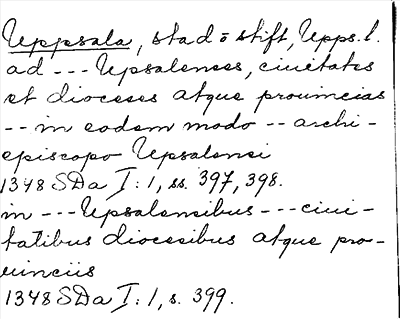 Uppsala, stad o stift, Upps. l.
ad --- Upsalenses, ciuitates
et dioceses atque prouincias
-- in eodem modo -- archi-
episcopo Upsalensi
1348 SDa I:1, ss. 397, 398.
in --- Upsalensibus --- ciui-
tatibus diocesibus atque pro-
uinciis
1348 SDa I:1, s. 399.